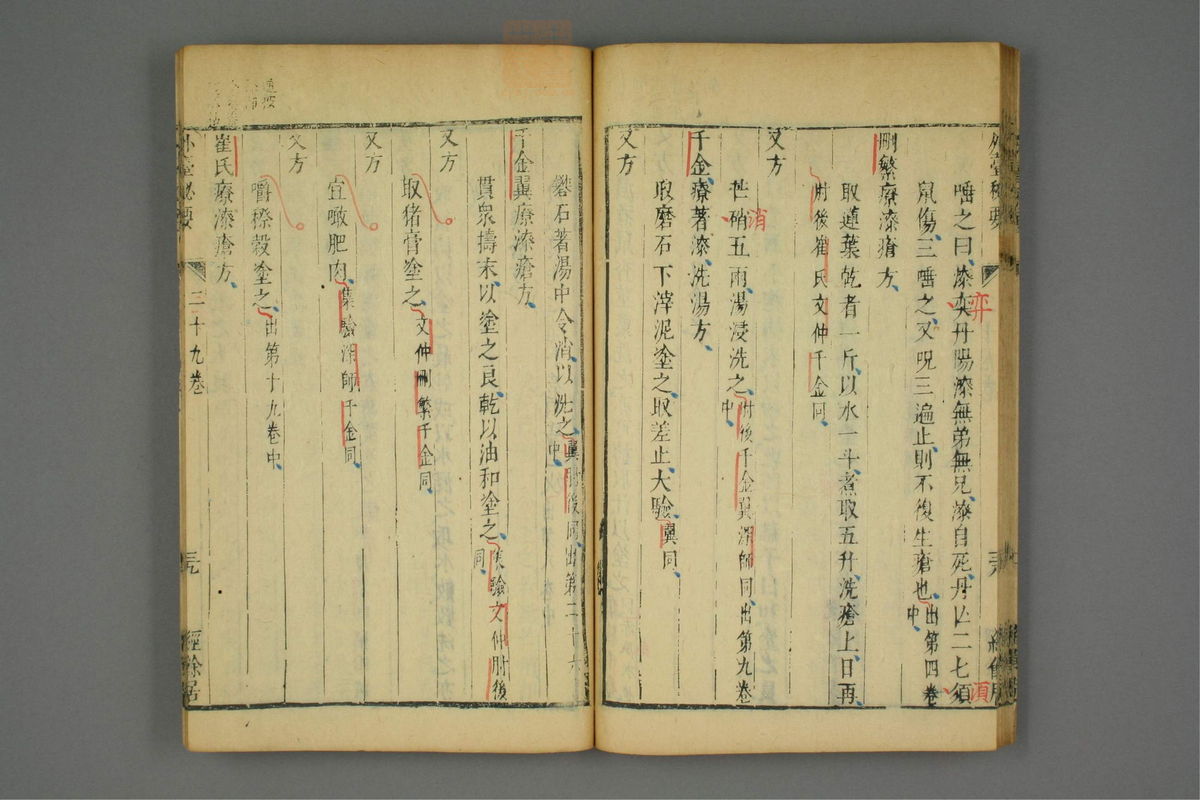 外臺秘要
唾之曰漆奕丹陽漆無弟無兄漆自死丹亡二七須
鼠傷三唾之又呪三遍止則不後生瘡也出第四卷中
刪繁療漆瘡方
取蓮葉乾者一斤以水一斗煮取五升洗瘡上日再
肘後崔氏文仲千金同
又方
芒硝五兩湯浸洗之肘後千金翼深師同出第九卷中
千金療著漆洗湯方
取磨石下滓泥塗之取差止大驗翼同
又方
礬石著湯中令消以洗之翼肘後同出第二十六中
千金翼療漆瘡方
貫衆擣末以塗之良乾以油和塗之集驗文仲肘後同
又方
取猪膏塗之文仲刪繁千金同
又方
宜噉肥肉集驗深師千金同
又方
嚼穄穀塗之出第十九卷中
崔氏療漆瘡方
外臺秘要
二十九卷
三九
經餘居
弈
須
消